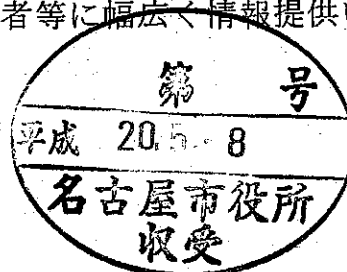 者等に幅広く情報提供
第 号
平成 20.5.-8
名古屋市役所
収受